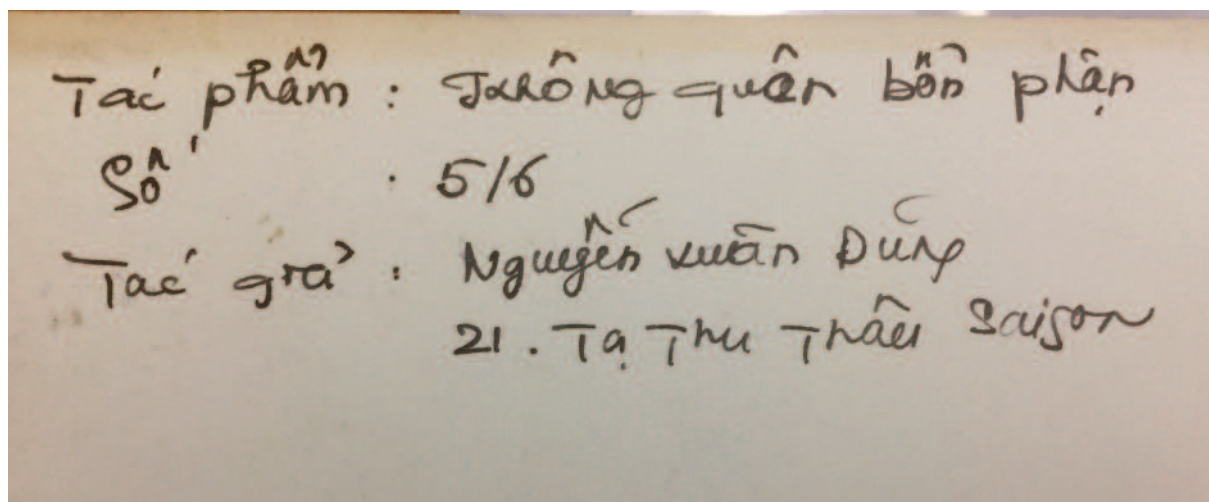 Tác phẩm : Không quân bổn phận
Số : 5/6
Tác giả : Nguyễn Xuân Dũng
21. Tạ Thu Thâu Saigon